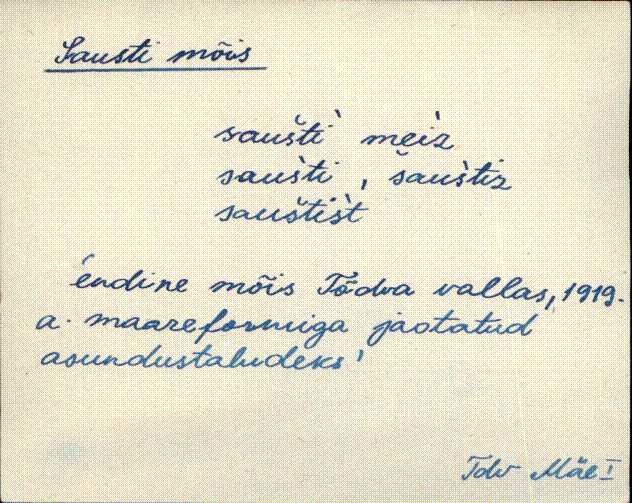 Sausti mõis
saušti meiz
saušti, šaušti̬z
sauštišt
'endine mõis Tõdva vallas, 1919.
a. maareformiga jaotatud
asundustaludeks'
Tdv Mäe I